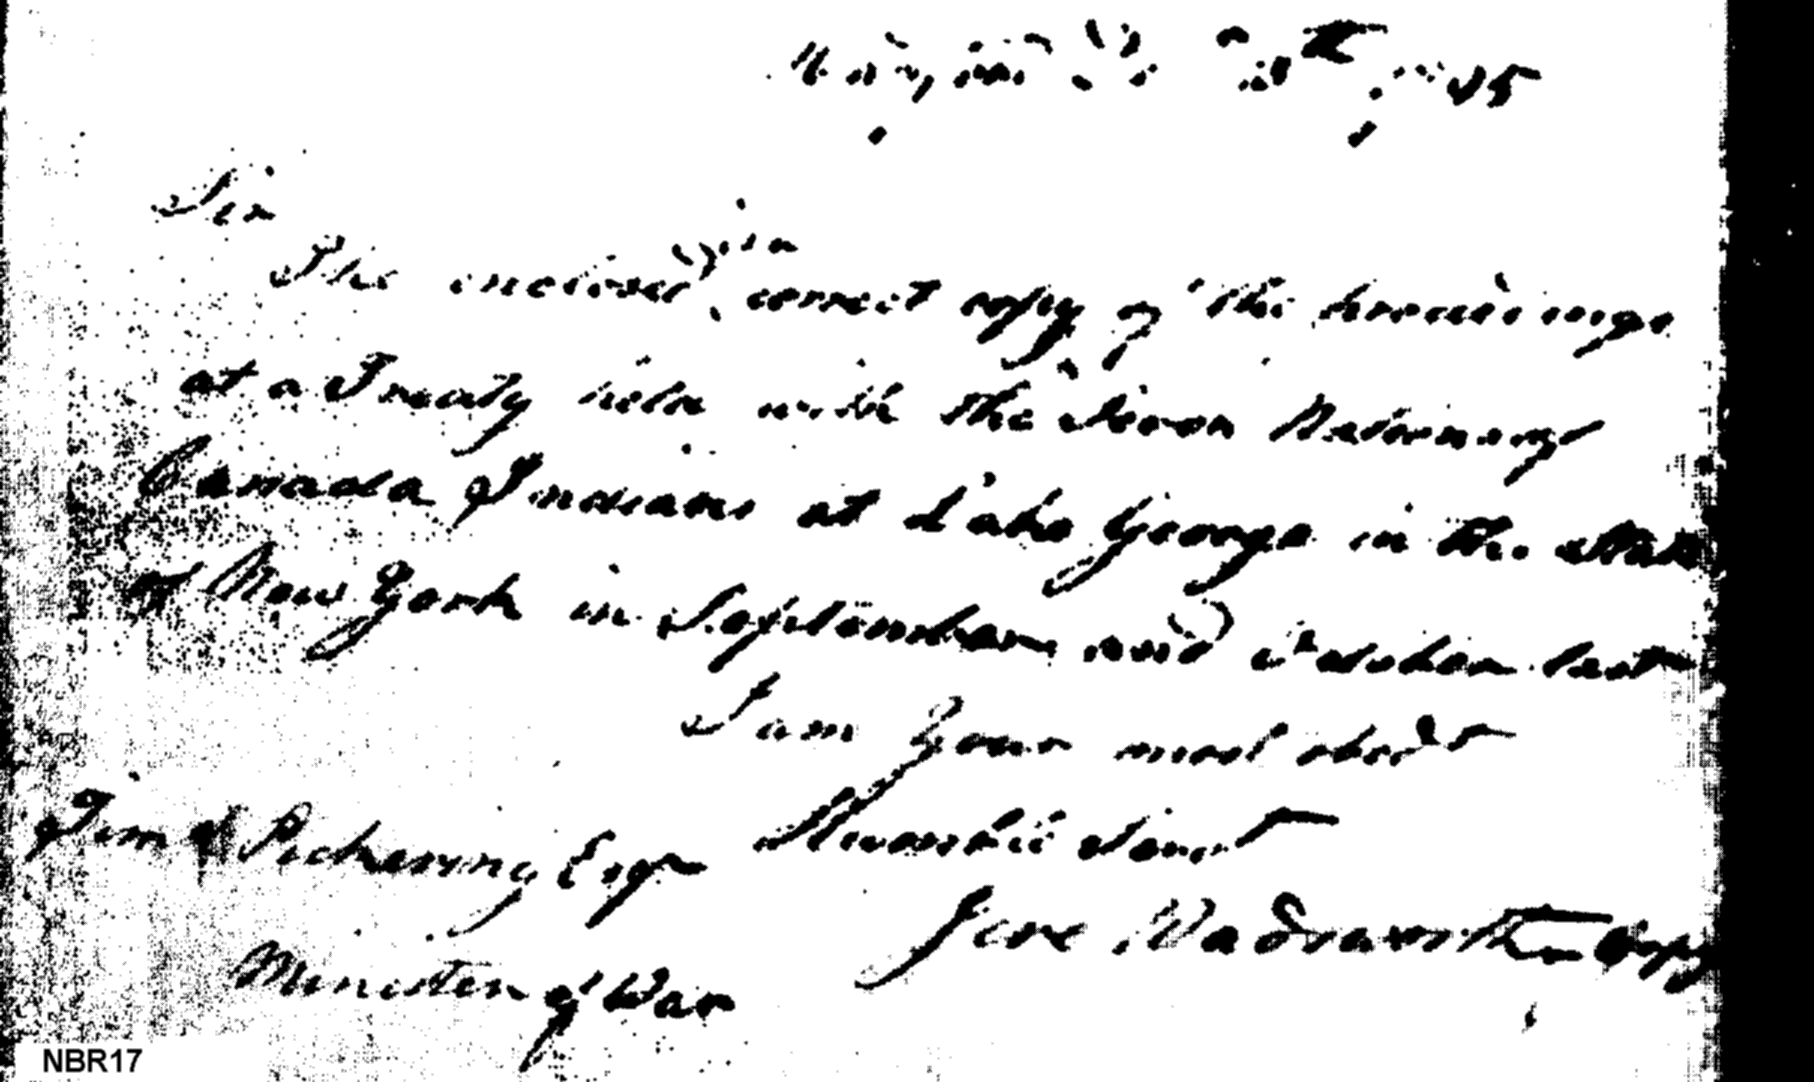 Sir
The enclosed is a correct copy of the proceedings
at a Treaty held with the Seven Nations of
Canada Indians at Lake George in the State
of New York in September and October last
I am Your most obedt
Humble Servt
Timy Pickering Esqr
Jere Wadsworth Copy
Minister of War
NBR17